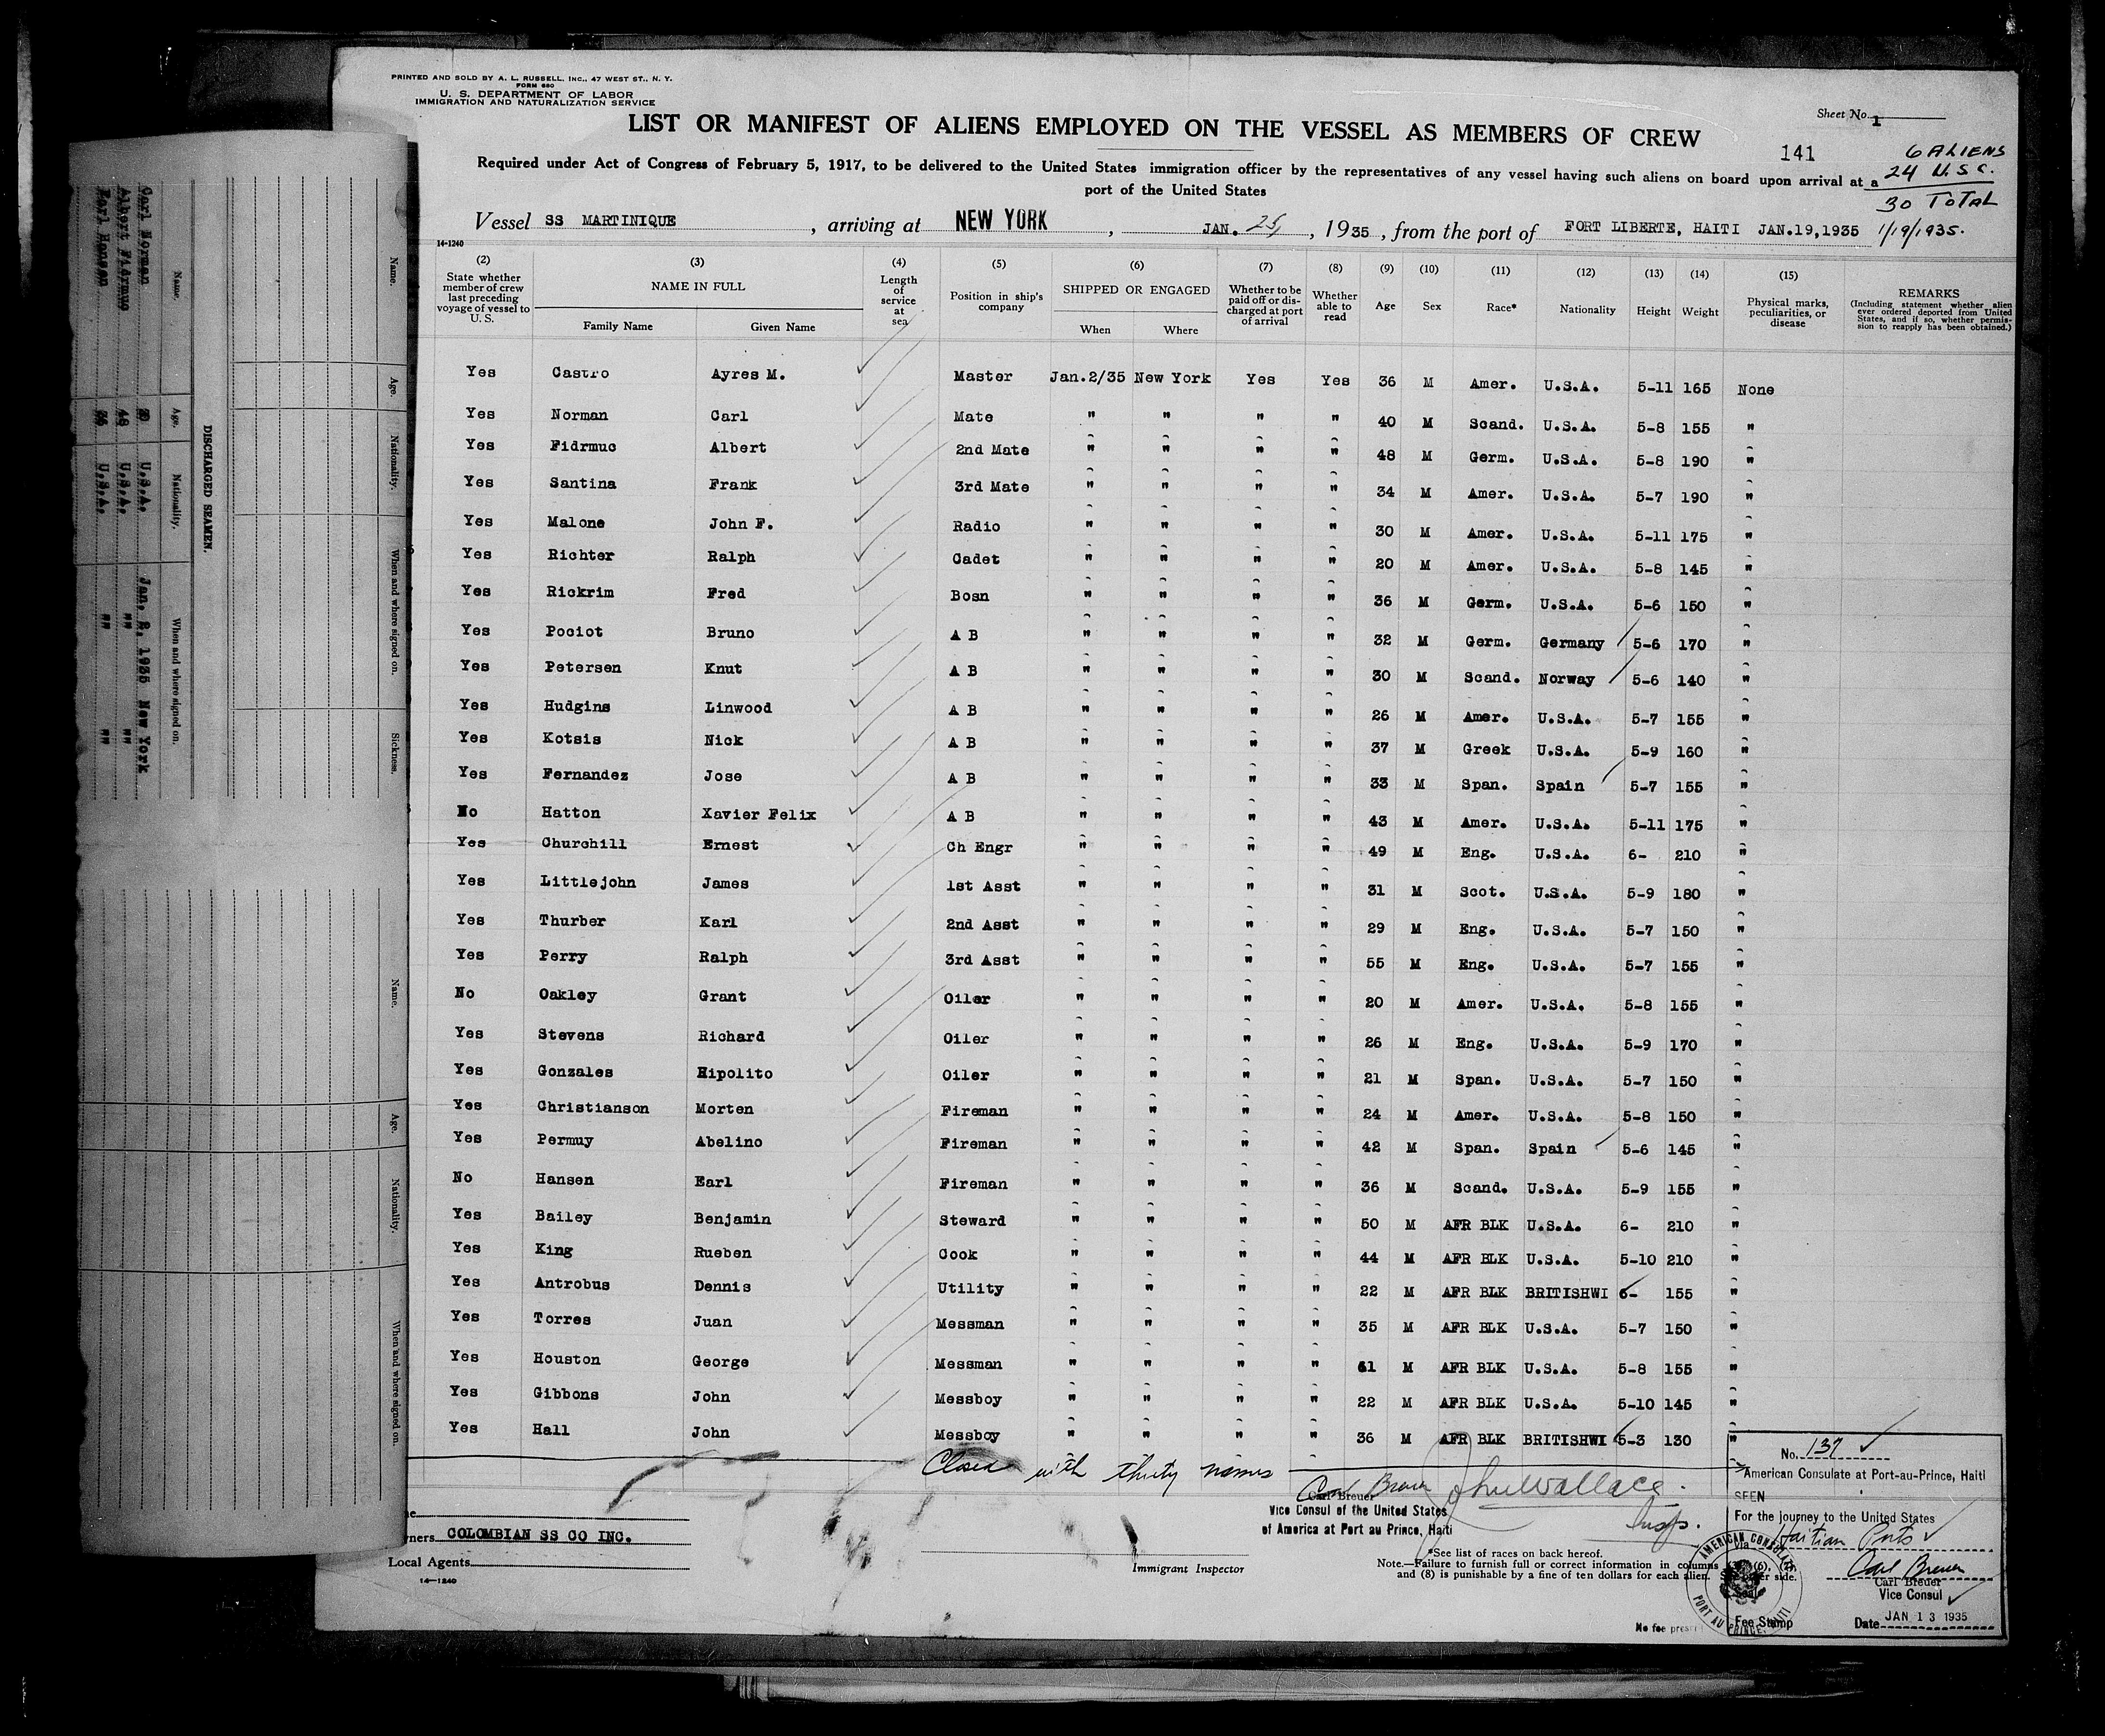 PRINTED AND SOLD BY A. L. RUSSELL, INC., 47 WEST ST., N. Y.
FORM 680
U. S. DEPARTMENT OF LABOR
IMMIGRATION AND NATURALIZATION SERVICE
Sheet No. 1
LIST OR MANIFEST OF ALIENS EMPLOYED ON THE VESSEL AS MEMBERS OF CREW
141
6 ALIENS
24 U.S.C.
30 TOTAL
Required under Act of Congress of February 5, 1917, to be delivered to the United States immigration officer by the representatives of any vessel having such aliens on board upon arrival at a
port of the United States
Vessel SS MARTINIQUE , arriving at NEW YORK , JAN. 25, , 1935 , from the port of FORT LIBERTE, HAITI JAN.19,1935 1/19/1935.
14-1240
(2) (3) (4) (5) (6) (7) (8) (9) (10) (11) (12) (13) (14) (15)
State whether member of crew last preceding voyage of vessel to U. S.
NAME IN FULL
Family Name Given Name
Length of service at sea
Position in ship's company
SHIPPED OR ENGAGED
When Where
Whether to be paid off or discharged at port of arrival
Whether able to read
Age Sex Race* Nationality Height Weight
Physical marks, peculiarities, or disease
REMARKS
(Including statement whether alien ever ordered deported from United States, and if so, whether permission to reapply has been obtained.)
Yes Castro Ayres M. Master Jan.2/35 New York Yes Yes 36 M Amer. U.S.A. 5-11 165 None
Yes Norman Carl Mate " " " " 40 M Scand. U.S.A. 5-8 155 "
Yes Fidrmuc Albert 2nd Mate " " " " 48 M Germ. U.S.A. 5-8 190 "
Yes Santina Frank 3rd Mate " " " " 34 M Amer. U.S.A. 5-7 190 "
Yes Malone John F. Radio " " " " 30 M Amer. U.S.A. 5-11 175 "
Yes Richter Ralph Cadet " " " " 20 M Amer. U.S.A. 5-8 145 "
Yes Rickrim Fred Bosn " " " " 36 M Germ. U.S.A. 5-6 150 "
Yes Pociot Bruno A B " " " " 32 M Germ. Germany 5-6 170 "
Yes Petersen Knut A B " " " " 30 M Scand. Norway 5-6 140 "
Yes Hudgins Linwood A B " " " " 26 M Amer. U.S.A. 5-7 155 "
Yes Kotsis Nick A B " " " " 37 M Greek U.S.A. 5-9 160 "
Yes Fernandez Jose A B " " " " 33 M Span. Spain 5-7 155 "
No Hatton Xavier Felix A B " " " " 43 M Amer. U.S.A. 5-11 175 "
Yes Churchill Ernest Ch Engr " " " " 49 M Eng. U.S.A. 6- 210 "
Yes Littlejohn James 1st Asst " " " " 31 M Scot. U.S.A. 5-9 180 "
Yes Thurber Karl 2nd Asst " " " " 29 M Eng. U.S.A. 5-7 150 "
Yes Perry Ralph 3rd Asst " " " " 55 M Eng. U.S.A. 5-7 155 "
No Oakley Grant Oiler " " " " 20 M Amer. U.S.A. 5-8 155 "
Yes Stevens Richard Oiler " " " " 26 M Eng. U.S.A. 5-9 170 "
Yes Gonzales Hipolito Oiler " " " " 21 M Span. U.S.A. 5-7 150 "
Yes Christianson Morten Fireman " " " " 24 M Amer. U.S.A. 5-8 150 "
Yes Permuy Abelino Fireman " " " " 42 M Span. Spain 5-6 145 "
No Hansen Earl Fireman " " " " 36 M Scand. U.S.A. 5-9 155 "
Yes Bailey Benjamin Steward " " " " 50 M AFR BLK U.S.A. 6- 210 "
Yes King Rueben Cook " " " " 44 M AFR BLK U.S.A. 5-10 210 "
Yes Antrobus Dennis Utility " " " " 22 M AFR BLK BRITISHWI 6- 155 "
Yes Torres Juan Messman " " " " 35 M AFR BLK U.S.A. 5-7 150 "
Yes Houston George Messman " " " " 61 M AFR BLK U.S.A. 5-8 155 "
Yes Gibbons John Messboy " " " " 22 M AFR BLK U.S.A. 5-10 145 "
Yes Hall John Messboy " " " " 36 M AFR BLK BRITISHWI 5-3 130 "
Closed with thirty names
Carl Breuer
Carl Breuer
Vice Consul of the United States
of America at Port au Prince, Haiti
Wallace.
Insp.
COLOMBIAN SS CO INC.
Local Agents
14—1240
Immigrant Inspector
*See list of races on back hereof.
Note.—Failure to furnish full or correct information in columns (6), (7),
and (8) is punishable by a fine of ten dollars for each alien.
No. 137
American Consulate at Port-au-Prince, Haiti
SEEN
For the journey to the United States
Via Haitian Ports
Carl Breuer
Carl Breuer
Vice Consul
Seal
Fee Stamp
Date JAN 13 1935
AMERICAN CONSULATE
PORT AU PRINCE, HAITI
No fee
DISCHARGED SEAMEN.
Name. Age. Nationality. When and where signed on.
Carl Norman U.S.A. Jan. 2, 1935 New York
Albert Fidrmuc 48 U.S.A. "" ""
Earl Hansen 36 U.S.A. "" ""
Name. Age. Nationality. When and where signed on. Sickness.
Name. Age. Nationality. When and where signed on.